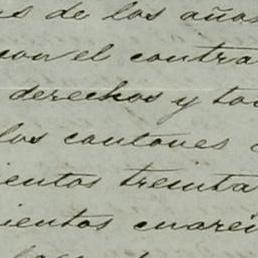 s de los años
con el contra
derechos y to
los cantones
ientos treinta
ientos cuare